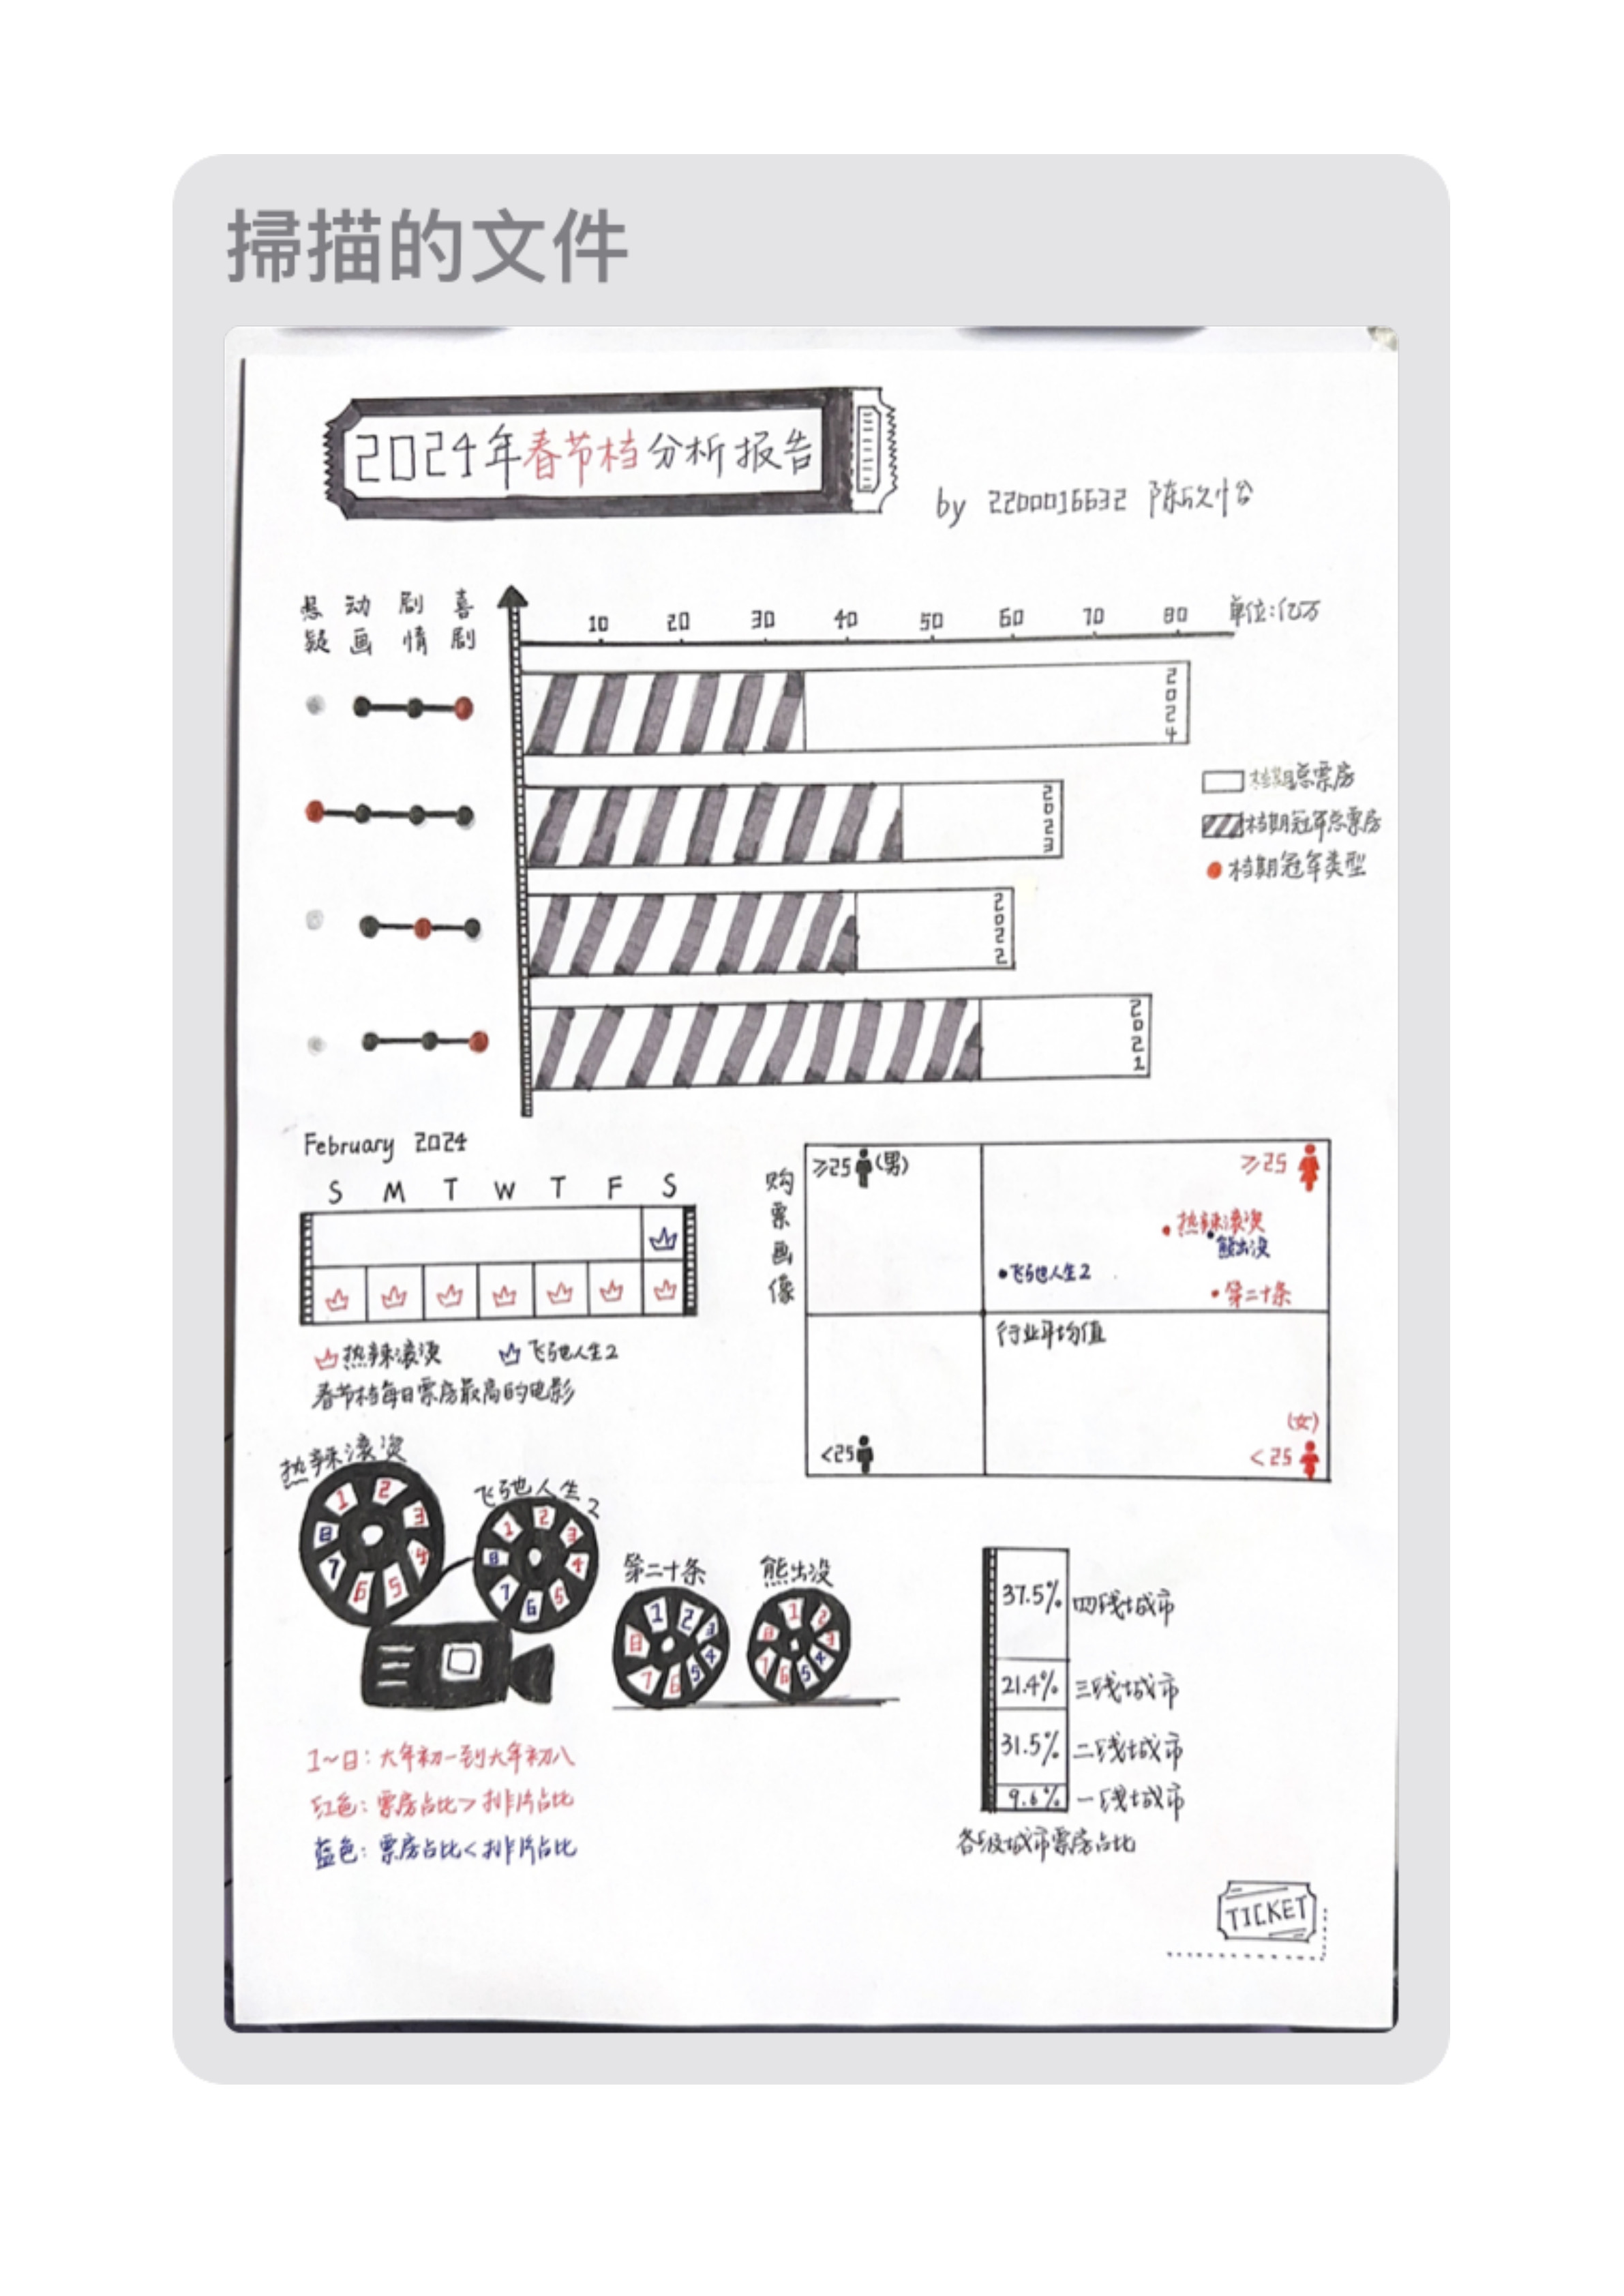 掃描的文件
2024年春节档分析报告
by 2200016632
悬疑 动画 剧情 喜剧
10 20 30 40 50 60 70 80 单位:亿万
2024
2023
2022
2021
档期总票房
档期冠军总票房
档期冠军类型
February 2024
S M T W T F S
热辣滚烫 飞驰人生2
春节档每日票房最高的电影
购票画像
≥25 (男)
≥25
热辣滚烫
熊出没
飞驰人生2
第二十条
行业平均值
<25
(女)
<25
热辣滚烫
1 2 3 4 5 6 7 8
飞驰人生2
1 2 3 4 5 6 7 8
第二十条
1 2 3 4 5 6 7 8
熊出没
1 2 3 4 5 6 7 8
1~8: 大年初一到大年初八
红色: 票房占比>排片占比
蓝色: 票房占比<排片占比
37.5% 四线城市
21.4% 三线城市
31.5% 二线城市
9.6% 一线城市
各级城市票房占比
TICKET